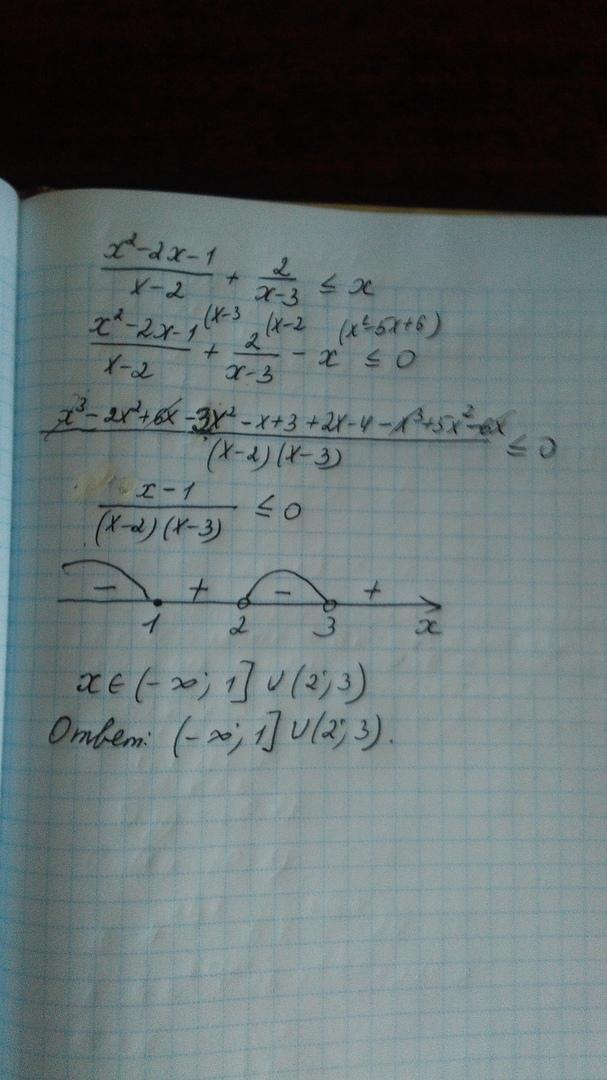 (x²-2x-1)/(x-2) + 2/(x-3) ≤ x
(x²-2x-1)/(x-2) (x-3 + 2/(x-3) (x-2 - x (x²-5x+6) ≤ 0
(x³-2x²+6x-3x²-x+3+2x-4-x³+5x²-6x)/((x-2)(x-3)) ≤ 0
(x-1)/((x-2)(x-3)) ≤ 0
- + - +
1 2 3 x
x ∈ (-∞; 1] ∪ (2; 3)
Ответ: (-∞; 1] ∪ (2; 3).